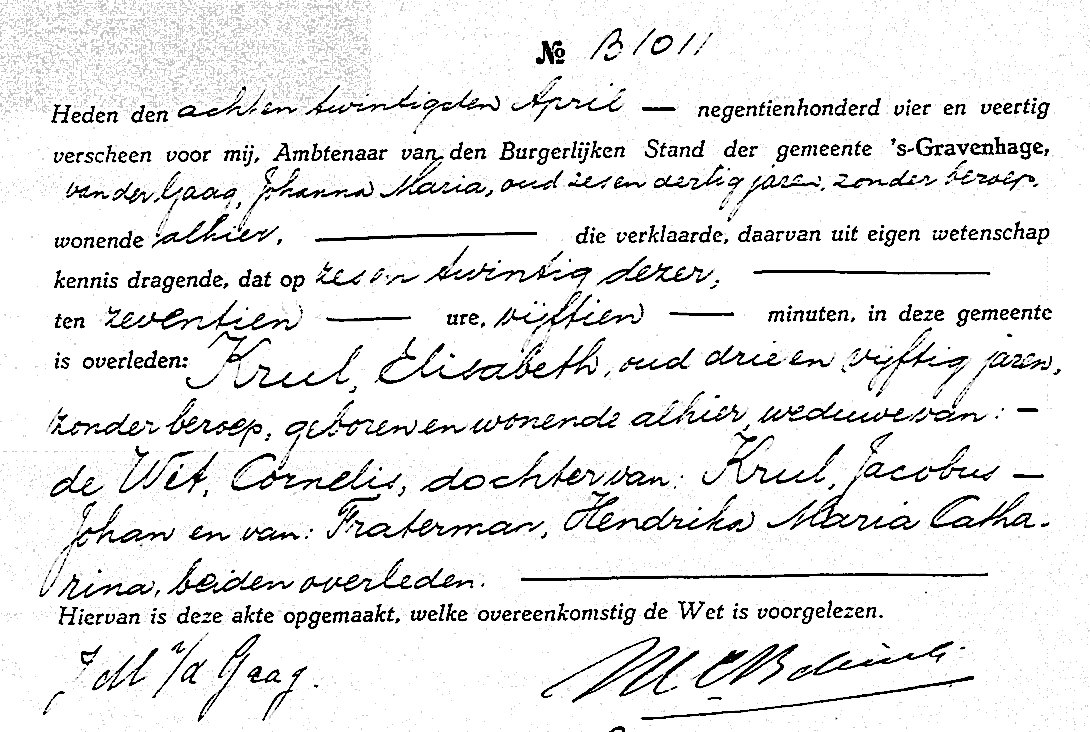 № B1011
Heden den achten twintigsten April — negentienhonderd vier en veertig
verscheen voor mij, Ambtenaar van den Burgerlijken Stand der gemeente 's-Gravenhage,
van der Gaag, Johanna Maria, oud zes en dertig jaren, zonder beroep,
wonende alhier, — die verklaarde, daarvan uit eigen wetenschap
kennis dragende, dat op zes en twintig dezer, —
ten zeventien — ure, vijftien — minuten, in deze gemeente
is overleden: Krul, Elisabeth, oud drie en vijftig jaren,
zonder beroep, geboren en wonende alhier, weduwe van: —
de Wit, Cornelis, dochter van: Krul, Jacobus —
Johan en van: Fraterman, Hendrika Maria Catha-
rina, beiden overleden. —
Hiervan is deze akte opgemaakt, welke overeenkomstig de Wet is voorgelezen.
J M v/d Gaag.